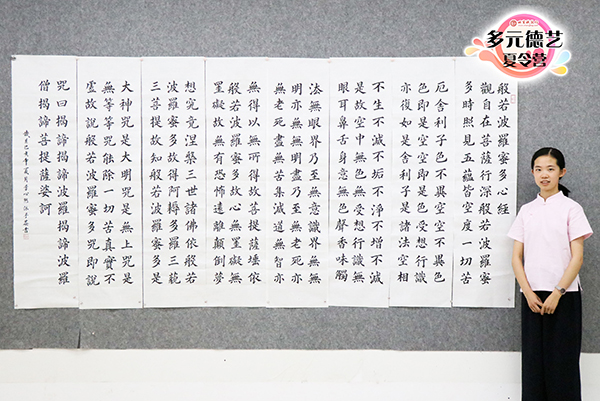 多元德艺
夏令营
般若波羅蜜多心經
觀自在菩薩行深般若波羅蜜
多時照見五蘊皆空度一切苦
厄舍利子色不異空空不異色
色即是空空即是色受想行識
亦復如是舍利子是諸法空相
不生不滅不垢不淨不增不減
是故空中無色無受想行識無
眼耳鼻舌身意無色聲香味觸
法無眼界乃至無意識界無無
明亦無無明盡乃至無老死亦
無老死盡無苦集滅道無智亦
無得以無所得故菩提薩埵依
般若波羅蜜多故心無罣礙無
罣礙故無有恐怖遠離顛倒夢
想究竟涅槃三世諸佛依般若
波羅蜜多故得阿耨多羅三藐
三菩提故知般若波羅蜜多是
大神咒是大明咒是無上咒是
無等等咒能除一切苦真實不
虛故說般若波羅蜜多咒即說
咒曰揭諦揭諦波羅揭諦波羅
僧揭諦菩提薩婆訶